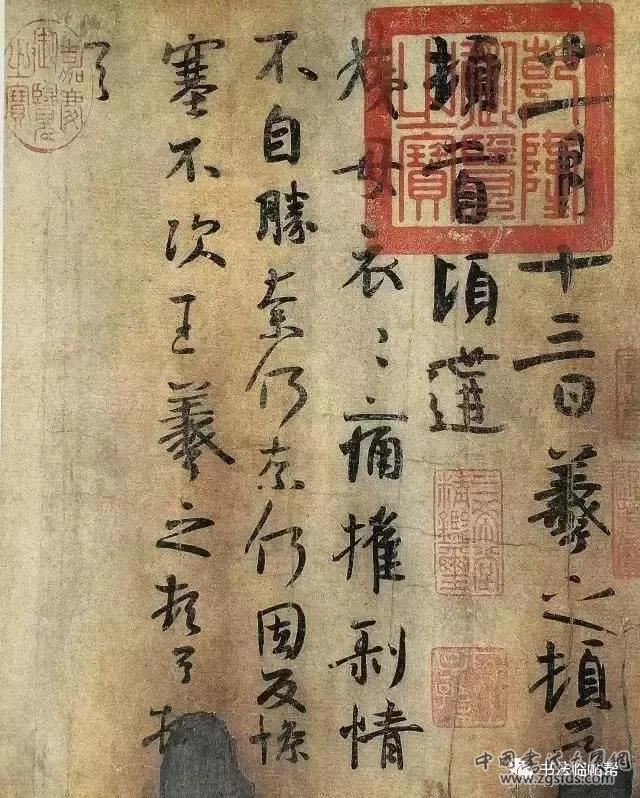 十一月十三日羲之頓首
頓首頃遘
姨母哀〻痛摧剝情
不自勝奈何奈何因反慘
塞不次王羲之頓首頓
首
乾隆御覽之寶
三希堂精鑑璽
嘉慶御覽之寶
书法临帖帮